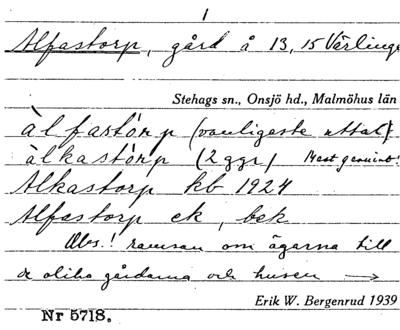 1
Alfastorp, gård å 13, 15 Värlinge
Stehags sn., Onsjö hd., Malmöhus län
àlfastórp (vanligaste uttal)
àlkastórp (2 ggr) Mest genuint!
Alkastorp kb 1924
Alfastorp ek, bek
Obs.! ramsan om ägarna till
de olika gårdarna och husen →
Erik W. Bergenrud 1939
Nr 5718.